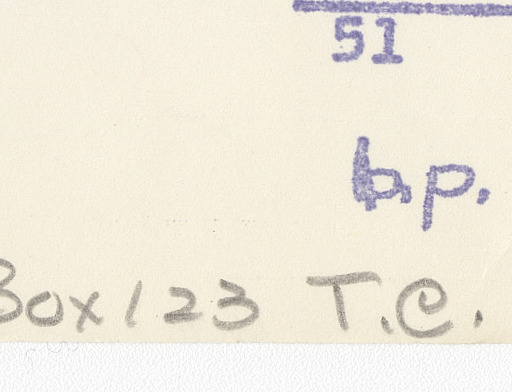 51
b.p.
Box 123 T.C.